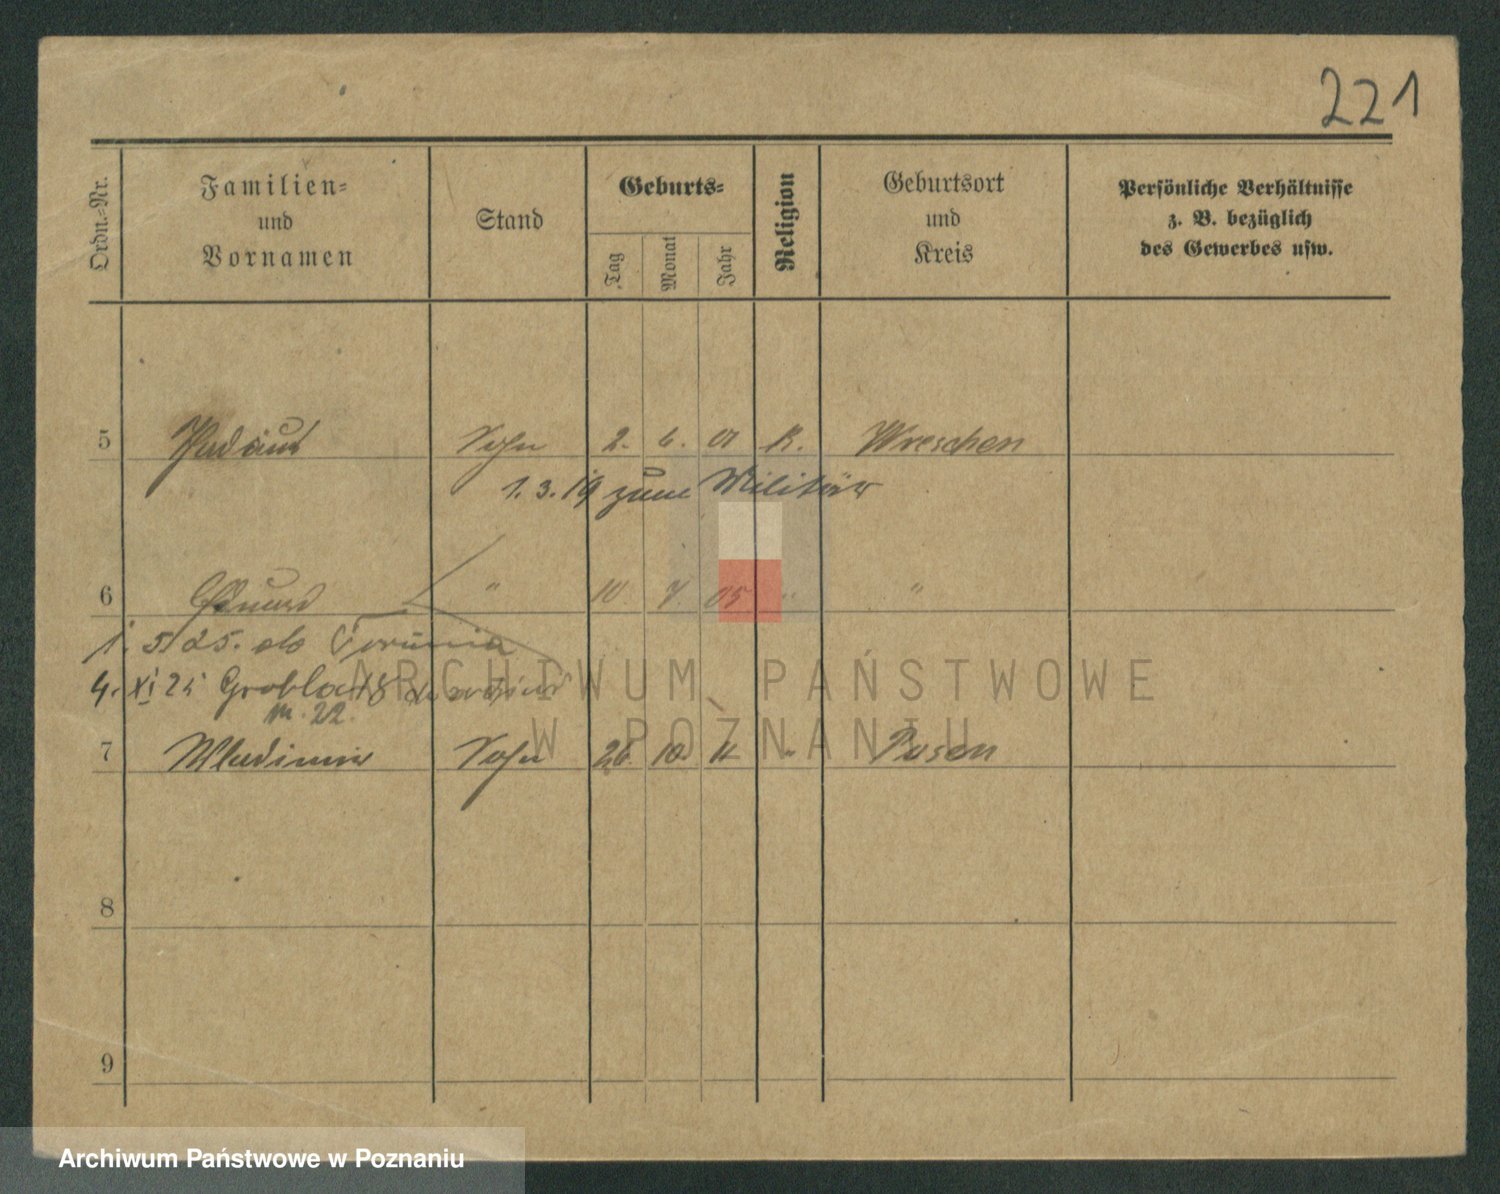 221
Ordn.=Nr.
Familien=
und
Vornamen
Stand
Geburts=
Tag
Monat
Jahr
Religion
Geburtsort
und
Kreis
Persönliche Verhältnisse
z. B. bezüglich
des Gewerbes usw.
5 Sohn 2. 6. 01 K. Wreschen
1. 3. 19 zum Militär
6 " 10 7. 05 " "
1. 5 25. do Torunia
4. XI 25 Grobla
m. 22.
7 Wladimir Sohn 26. 10. 11 " Posen
8
9
ARCHIWUM PAŃSTWOWE
W POZNANIU
Archiwum Państwowe w Poznaniu